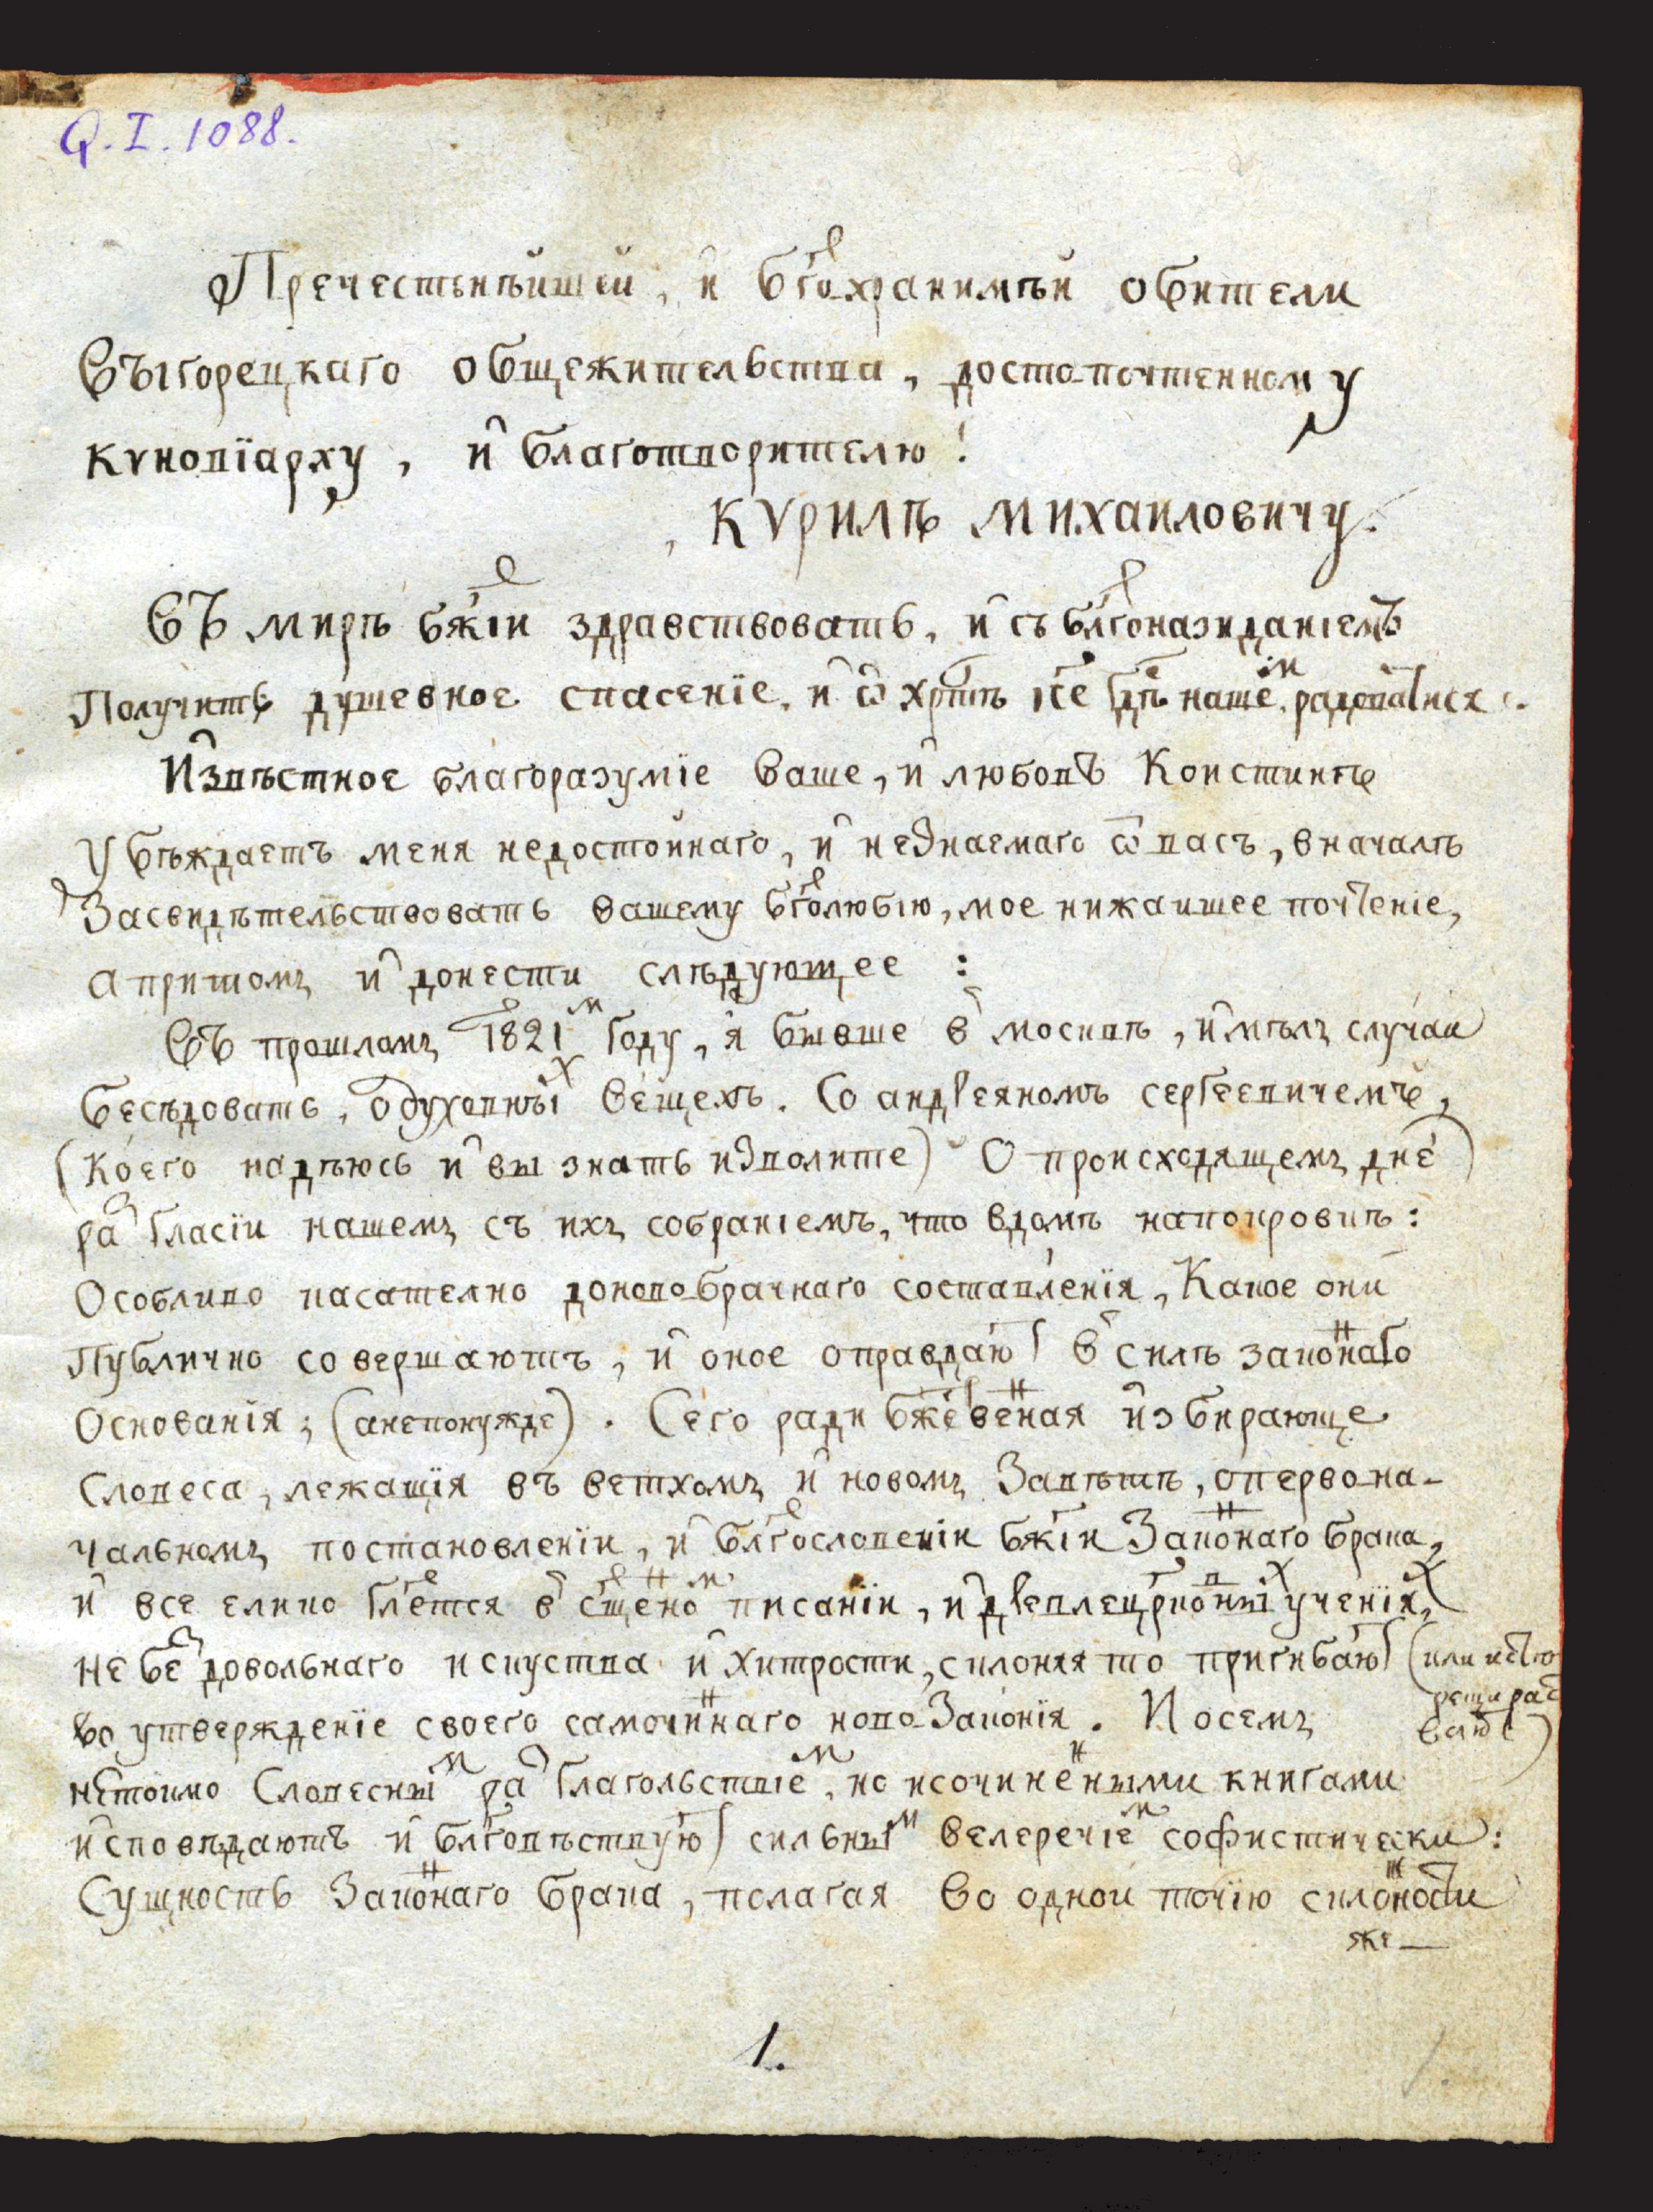 Q.I.1088.
Пречестьнѣйшей, и бг҃охранимѣй обители
Выгорецкаго общежительства, достопочтенному
кѵновїарху, и благотворителю!
Кѵрилѣ Михаиловичу.
Въ мирѣ бж҃іи здравствовать, и съ бл҃гоназиданіемъ
Получить душевное спасенїе, и ѡ хр҃тѣ іс҃е гд҃ѣ нашемъ радоватися.
Извѣстное благоразумїе ваше, и любовь
Убѣждаетъ меня недостойнаго, и незнаемаго ѿ васъ, вначалѣ
Засвидѣтельствовать вашему бг҃олюбію, мое нижаишее почтеніе,
а притомъ и донести слѣдующее:
Въ прошломъ 1821м году, я бывше в москвѣ, имѣлъ случаи
бесѣдовать, одуховныхъ вещехъ. Со андреяномъ сергеевичемъ,
(коего надѣюсь и вы знать изволите) О происходящемъ днесь
разгласїи нашемъ съ ихъ собраніемъ, что вдомѣ напокровскѣ:
Особливо касателно доновобрачнаго составленїя, Какое они
Публично совершаютъ, и оное оправдаютъ в силѣ законнаго
Основанія; (анепонужде). Сего ради бже҃ственная избирающе
Словеса, лежащїя въ ветхомъ и новомъ Завѣтѣ, опервона-
чальномъ постановленїи, и блг҃ословеніи бж҃іи Законнаго брака,
и все елико гл҃ется в сщ҃енномъ писаніи, и древлецрк҃овныхъ ученїяхъ,
не безъ довольнаго искуства и хитрости, склоняя то пригибаютъ (или
во утвержденїе своего самочиннаго новозаконїя. И осемъ
нетокмо Словеснымъ разглагольствіемъ, но исочиненными книгами
исповѣдаютъ и блг҃овѣствуютъ сильнымъ велеречіемъ софистически:
Сущность Законнаго брака, полагая во однои точїю склонности
же—
1.
1.